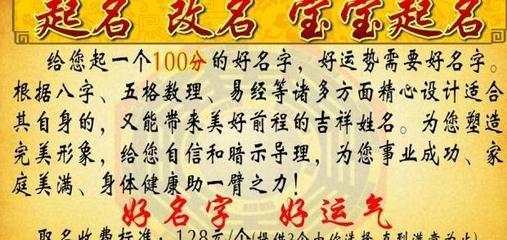 起名 改名 宝宝起名
给您起一个100分的好名字，好运势需要好名字。
根据八字、五格数理、易经等诸多方面精心设计适合
其自身的，又能带来美好前程的吉祥姓名。为您塑造
完美形象，给您自信和暗示导理，为您事业成功、家
庭美满、身体健康助一臂之力！
好名字 好运气
取名收费标准：128元/个(提供3个由你选择 直到满意为止)